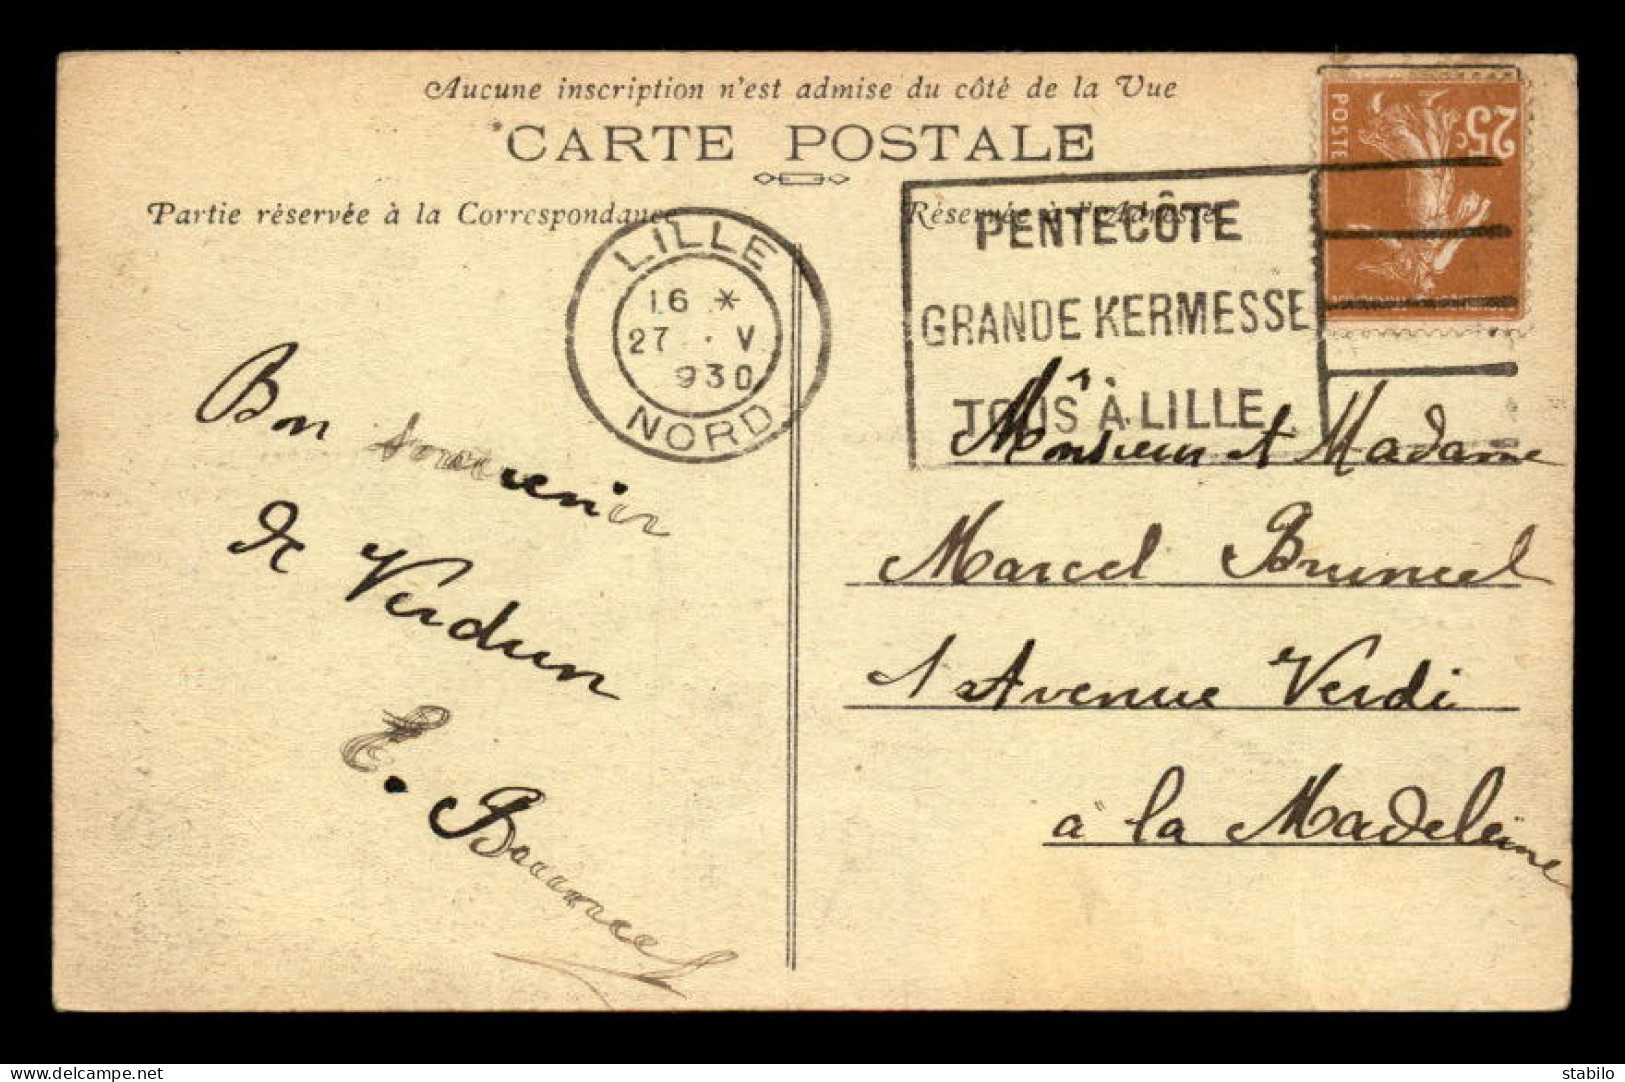 Aucune inscription n'est admise du côté de la Vue
CARTE POSTALE
Partie réservée à la Correspondance
Réservée à l'Adresse
LILLE
16 *
27 . V
930
NORD
PENTECÔTE
GRANDE KERMESSE
TOUS À LILLE
25c
POSTE
Bon souvenir
de Verdun
E.
Monsieur et Madame
Marcel Bruneel
1 Avenue Verdi
à la Madeleine
www.delcampe.net
stabilo